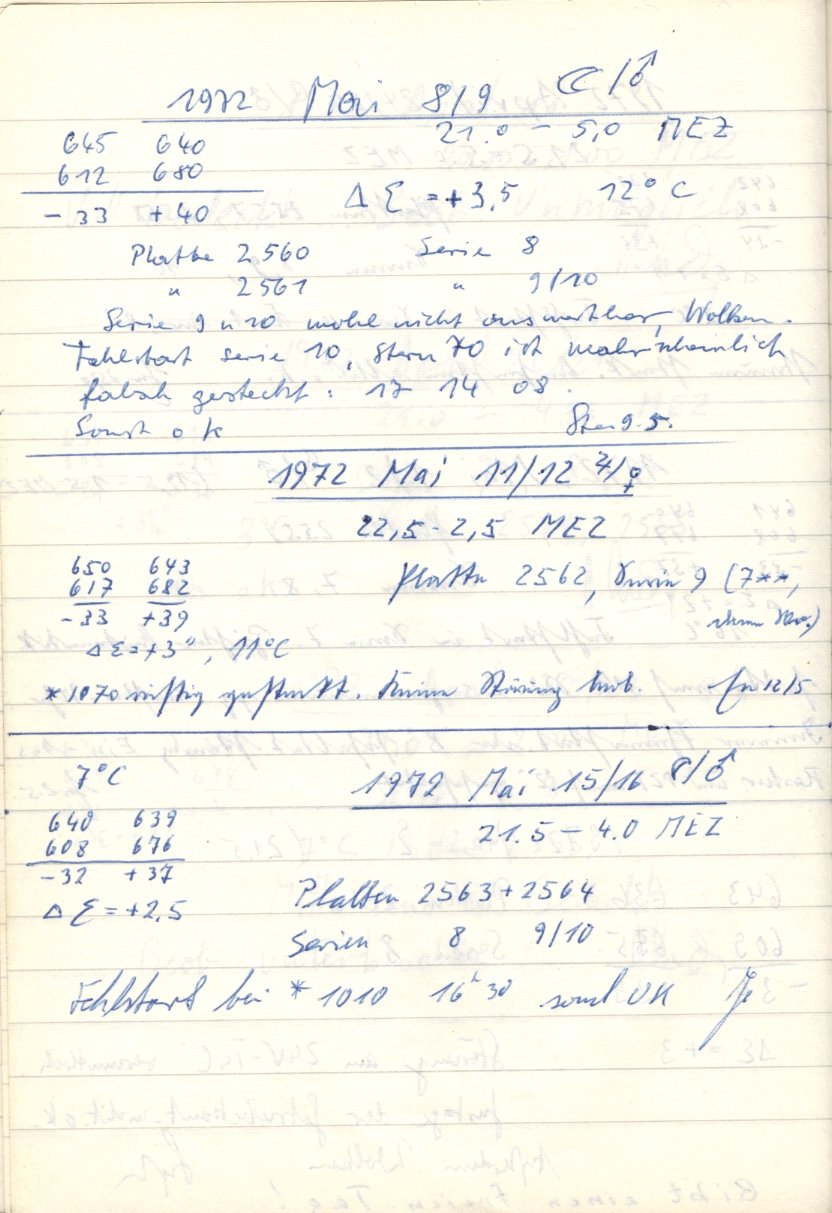 1972 Mai 8/9 ☾/♂
21.0 – 5,0 MEZ
645 640
612 680
- 33 + 40
Δ Σ = + 3,5 12° C
Platte 2560 Serie 8
" 2561 " 9/10
Serie 9 u 10 wohl nicht auswertbar, Wolken.
Fehlstart serie 10, Stern 70 ist wahrscheinlich
falsch gesteckt: 17 14 08.
Sonst ok
1972 Mai 11/12 ♃/♀
22,5 - 2,5 MEZ
650 643
617 682
- 33 + 39
Platte 2562, Serie 9 (7**,
Δ Σ = + 3", 11°C
* 1070 richtig gesteckt. Keine Störung
12/5
7°C
1972 Mai 15/16 /♂
21.5 – 4.0 MEZ
640 639
608 676
- 32 + 37
Δ Σ = + 2,5
Platten 2563 + 2564
Serien 8 9/10
Fehlstart bei * 1010 16h 30 sonst OK